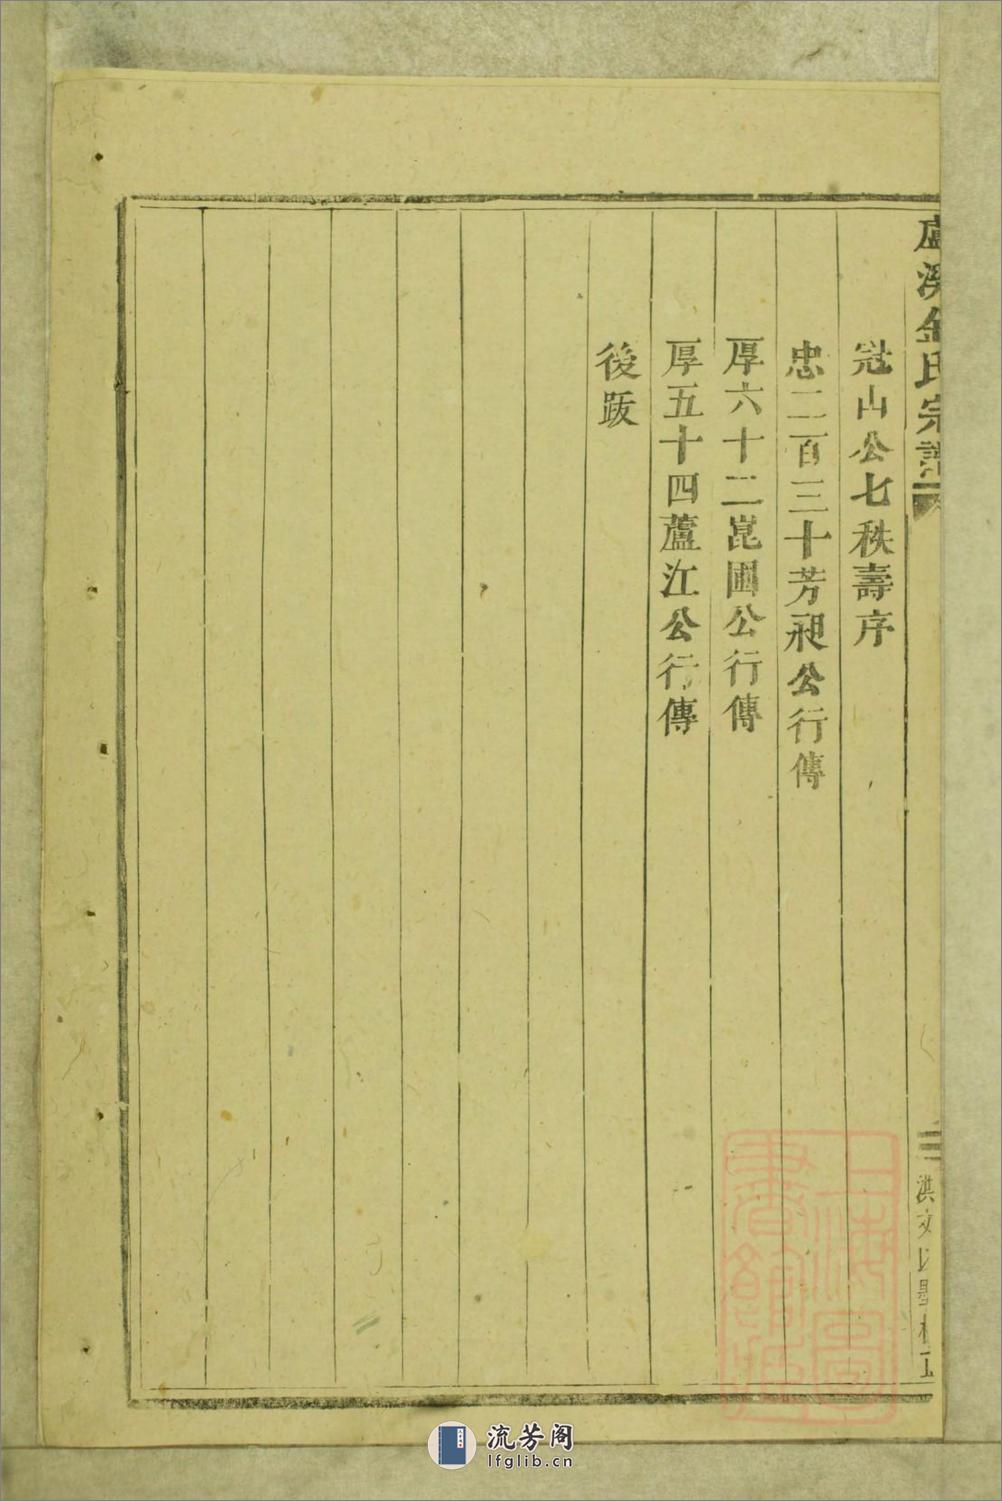 盧溪金氏宗譜
冠山公七秩壽序
忠二百三十芳昶公行傳
厚六十二崑圃公行傳
厚五十四蘆江公行傳
後跋
二
洪文
上海圖書館藏
流芳阁
lfglib.cn